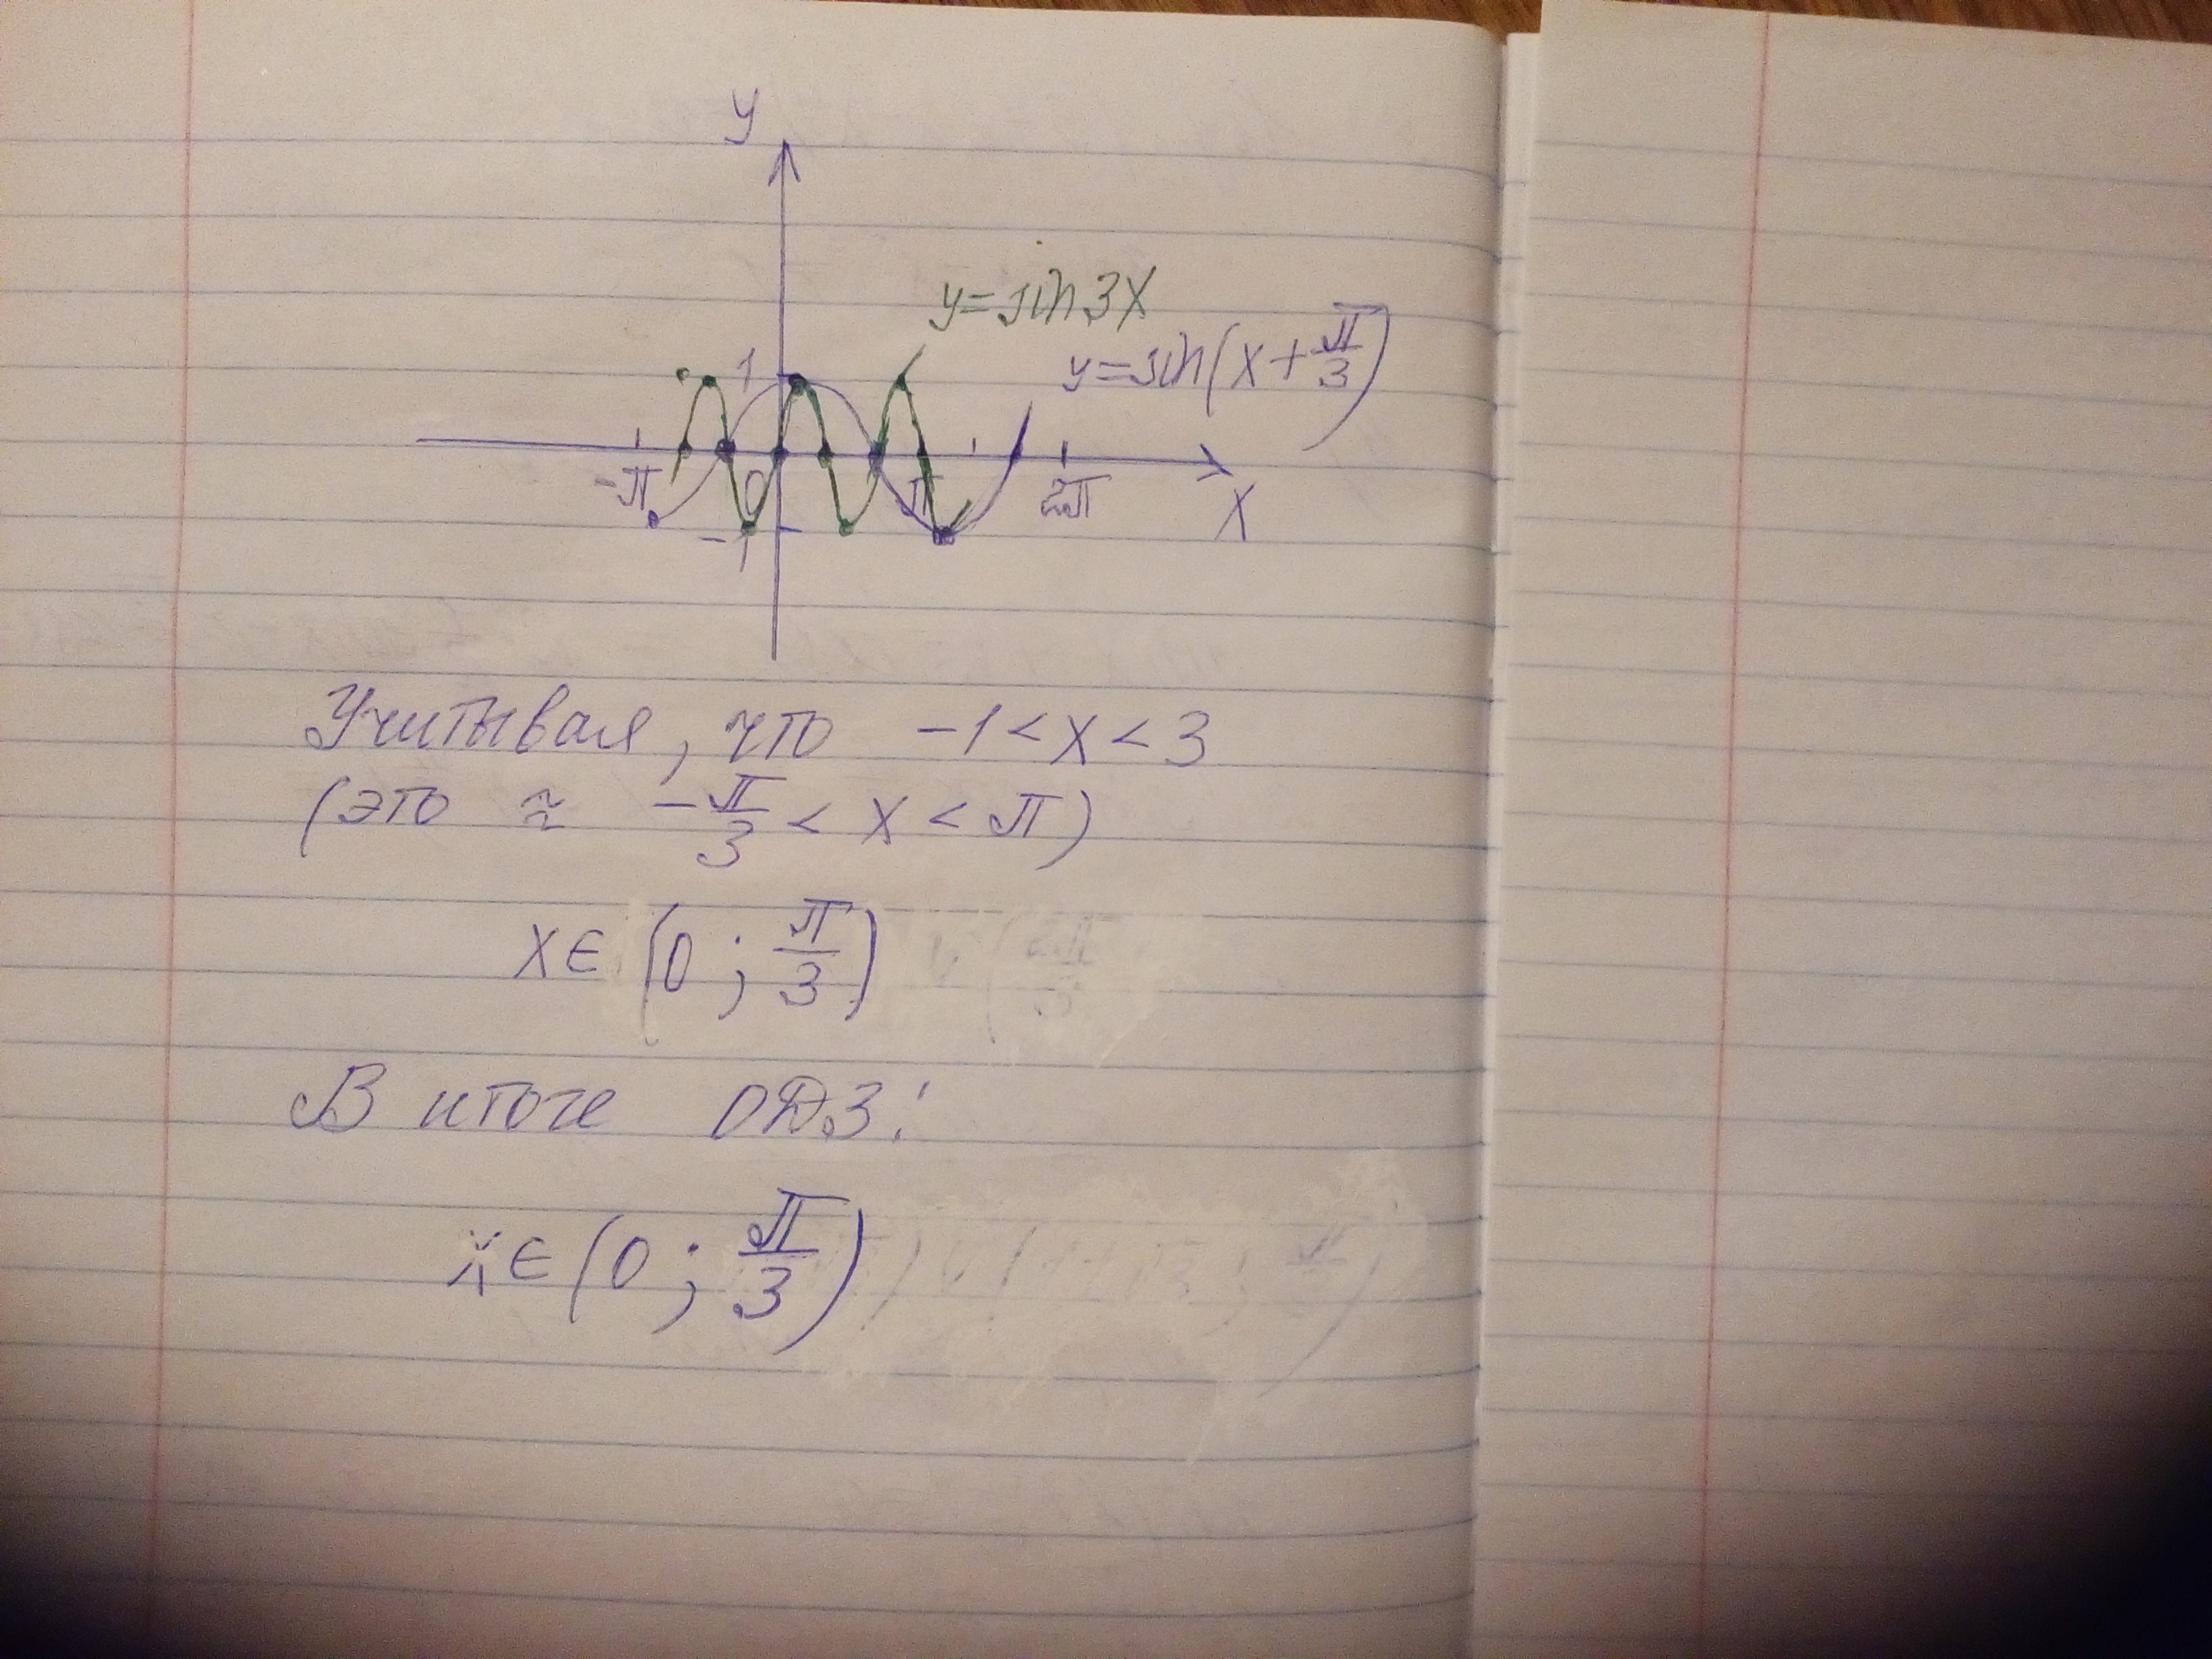 y
y=sin3x
y=sin(x+π/3)
1
-π 0 π 2π x
-1
Учитывая, что -1<x<3
(это ≈ -π/3 < x < π)
x∈(0; π/3)
В итоге ОДЗ:
x∈(0; π/3)